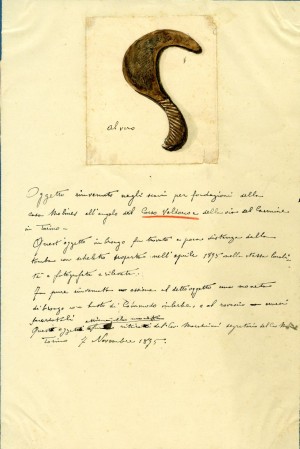 al vero
Oggetto rinvenuto negli scavi per fondazioni della
casa Molines all'angolo del Corso Valdocco della via del Carmine
in Torino -
Quest'oggetto in bronzo fu trovato a poca distanza della
tomba con scheletro scoperta nell'aprile 1895 nella stessa locali
tà e fotografata e rilevata.
Fu pure rinvenuto assieme al detto oggetto una moneta
di bronzo con testa di Commodo imberbe, e al rovescio
Quest'oggetto ritirato dal Cav. segretario
Torino 7 Novembre 1895.